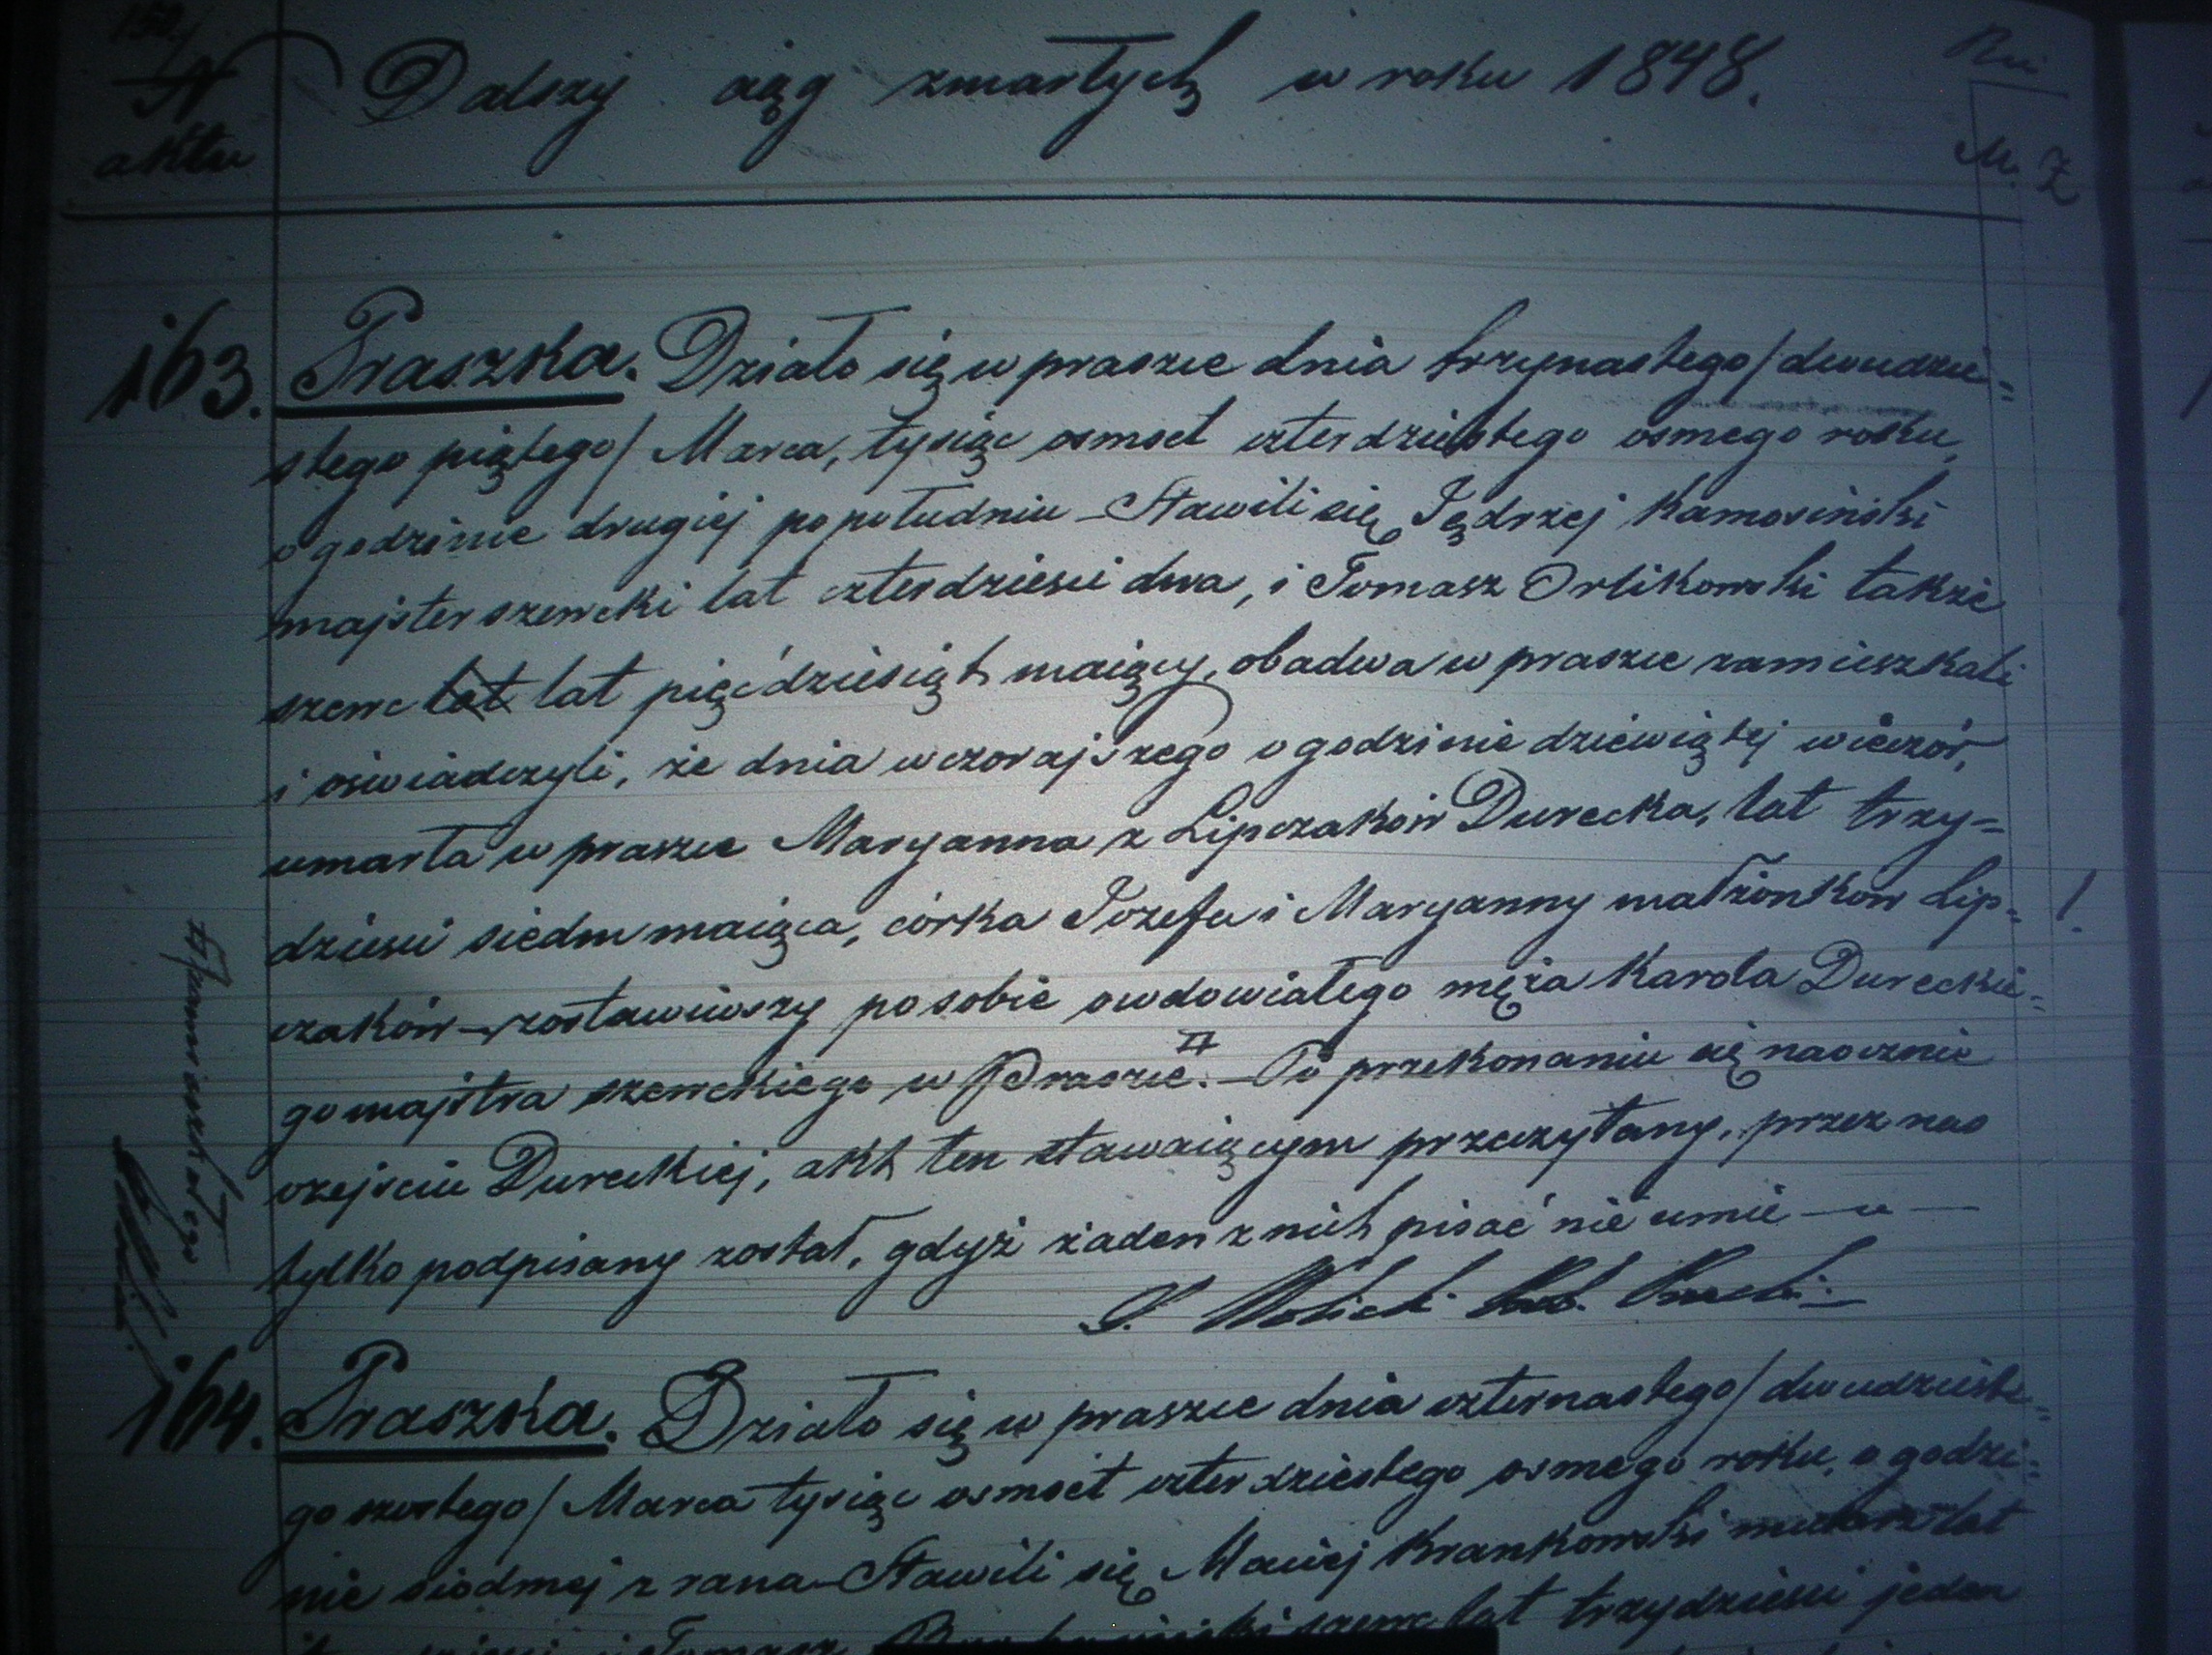 N
aktu
Dalszy ciąg zmarłych w roku 1848.
M. Z
163. Praszka. Działo się w praszce dnia trzynastego/dwudzie=
stego piątego/ Marca, tysiąc osmset czterdziestego osmego roku,
o godzinie drugiej popołudniu – Stawili się Jędrzej Kamosiński
majster szewcki lat czterdzieści dwa, i Tomasz Orlikowski także
szewc lat lat pięćdziesiąt maiący, obadwa w praszce zamieszkali
i oświadczyli, że dnia wczorajszego o godzinie dziewiątej wieczór,
umarła w praszce Maryanna z Lipczaków Durecka, lat trzy=
dzieści siedm maiąca, córka Jozefa i Maryanny małżonków Lip=
czaków – zostawiwszy po sobie owdowiałego męża Karola Dureckie=
go majstra szewckiego w Praszce. – Po przekonaniu się naocznie
o zejściu Dureckiej, akt ten stawaiącym przeczytany, przez nas
tylko podpisany został, gdyż żaden z nich pisać nie umie —
zamieszkałego
164. Praszka. Działo się w praszce dnia czternastego/ dwudzieste=
go szostego/ Marca tysiąc osmset czterdziestego osmego roku, o godzi=
nie siodmej z rana – Stawili się Maciej Krankowski lat
i Tomasz szewc lat trzydzieści jeden